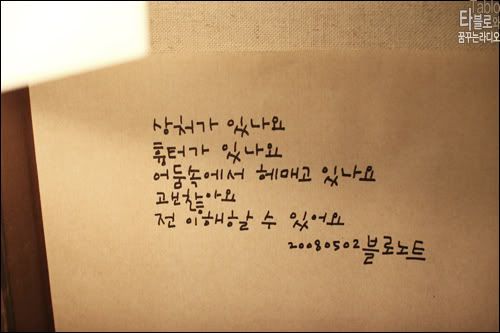 Tablo
타블로와
꿈꾸는라디오
상처가 있나요
흉터가 있나요
어둠속에서 헤매고 있나요
괜찮아요
전 이해할 수 있어요
20080502 블로노트